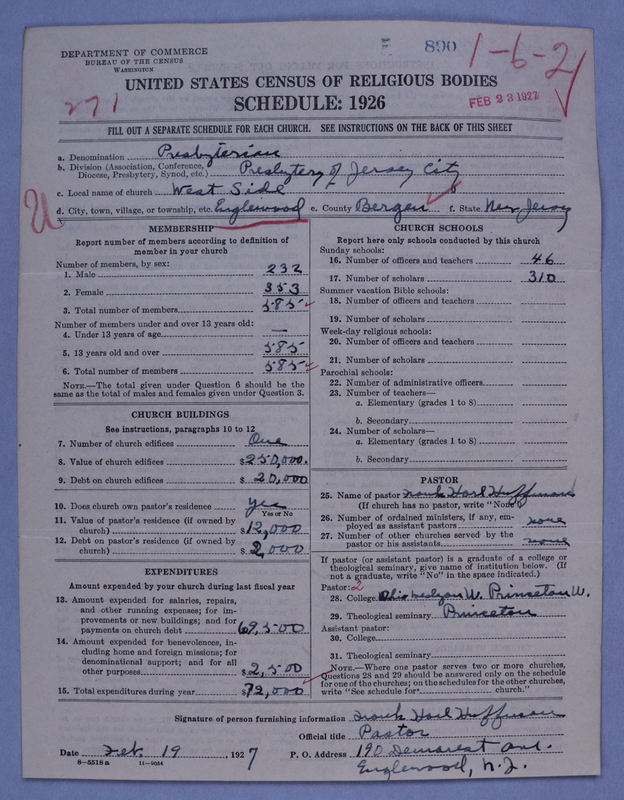 DEPARTMENT OF COMMERCE
BUREAU OF THE CENSUS
WASHINGTON
890
1-6-21
UNITED STATES CENSUS OF RELIGIOUS BODIES
SCHEDULE: 1926
271
FEB 23 1927
FILL OUT A SEPARATE SCHEDULE FOR EACH CHURCH. SEE INSTRUCTIONS ON THE BACK OF THIS SHEET
a. Denomination Presbyterian
b. Division (Association, Conference, Diocese, Presbytery, Synod, etc.) Presbytery of Jersey City
c. Local name of church West Side
d. City, town, village, or township, etc. Englewood e. County Bergen f. State New Jersey
MEMBERSHIP
Report number of members according to definition of
member in your church
Number of members, by sex:
1. Male 232
2. Female 353
3. Total number of members 585
Number of members under and over 13 years old:
4. Under 13 years of age —
5. 13 years old and over 585
6. Total number of members 585
NOTE.—The total given under Question 6 should be the
same as the total of males and females given under Question 3.
CHURCH BUILDINGS
See instructions, paragraphs 10 to 12
7. Number of church edifices One
8. Value of church edifices $250,000.
9. Debt on church edifices $20,000
10. Does church own pastor's residence yes
Yes or No
11. Value of pastor's residence (if owned by
church) $12,000
12. Debt on pastor's residence (if owned by
church) $2,000
EXPENDITURES
Amount expended by your church during last fiscal year
13. Amount expended for salaries, repairs,
and other running expenses; for im-
provements or new buildings; and for
payments on church debt 69,500
14. Amount expended for benevolences, in-
cluding home and foreign missions; for
denominational support; and for all
other purposes $2,500
15. Total expenditures during year $72,000
CHURCH SCHOOLS
Report here only schools conducted by this church
Sunday schools:
16. Number of officers and teachers 46
17. Number of scholars 310
Summer vacation Bible schools:
18. Number of officers and teachers
19. Number of scholars
Week-day religious schools:
20. Number of officers and teachers
21. Number of scholars
Parochial schools:
22. Number of administrative officers
23. Number of teachers—
a. Elementary (grades 1 to 8)
b. Secondary
24. Number of scholars—
a. Elementary (grades 1 to 8)
b. Secondary
PASTOR
25. Name of pastor Frank Hoffman
(If church has no pastor, write "None")
26. Number of ordained ministers, if any, em-
ployed as assistant pastors none
27. Number of other churches served by the
pastor or his assistants none
If pastor (or assistant pastor) is a graduate of a college or
theological seminary, give name of institution below. (If
not a graduate, write "No" in the space indicated.)
Pastor: 2
28. College Ohio Wesleyan U. Princeton U.
29. Theological seminary Princeton
Assistant pastor:
30. College
31. Theological seminary
NOTE.—Where one pastor serves two or more churches,
Questions 28 and 29 should be answered only on the schedule
for one of the churches; on the schedules for the other churches,
write "See schedule for church."
Signature of person furnishing information Frank Hoffman
Official title Pastor
Date Feb. 19, 1927 P. O. Address 190 Demarest Ave.
8-5518 a 11-9054 Englewood, N. J.